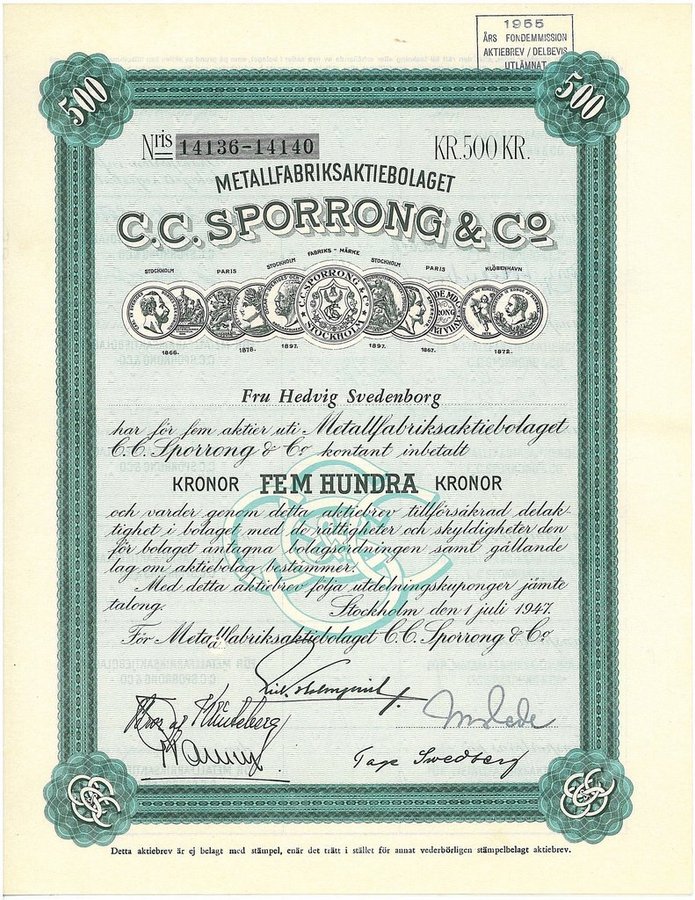 1955
ÅRS FONDEMMISSION
AKTIEBREV / DELBEVIS
UTLÄMNAT
500
500
Nris 14136-14140
KR. 500 KR.
METALLFABRIKSAKTIEBOLAGET
C.C. SPORRONG & Co
STOCKHOLM PARIS STOCKHOLM FABRIKS - MÄRKE STOCKHOLM PARIS KLÖBENHAVN
C.C. SPORRONG & Co
STOCKHOLM
1866. 1878. 1897. 1897. 1867. 1872.
Fru Hedvig Svedenborg
har för fem aktier uti Metallfabriksaktiebolaget
C.C. Sporrong & Co kontant inbetalt
KRONOR FEM HUNDRA KRONOR
och varder genom detta aktiebrev tillförsäkrad delak-
tighet i bolaget med de rättigheter och skyldigheter den
för bolaget antagna bolagsordningen samt gällande
lag om aktiebolag bestämmer.
Med detta aktiebrev följa utdelningskuponger jämte
talong.
Stockholm den 1 juli 1947.
För Metallfabriksaktiebolaget C.C. Sporrong & Co
Tage Swedberg
Detta aktiebrev är ej belagt med stämpel, enär det trätt i stället för annat vederbörligen stämpelbelagt aktiebrev.